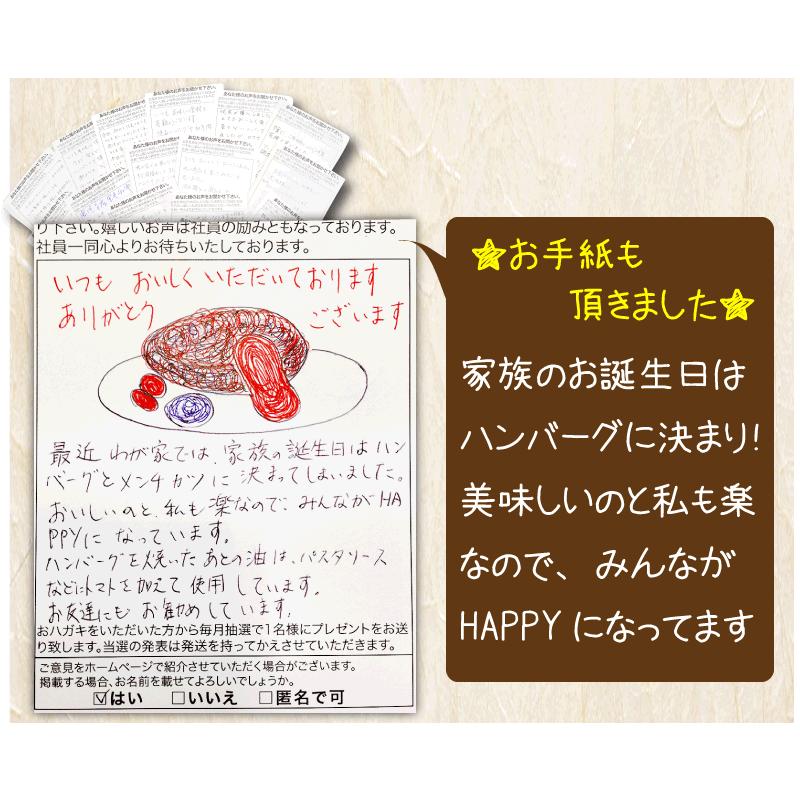 あなた様のお声をお聞かせ下さい。
り下さい。嬉しいお声は社員の励みともなっております。
社員一同心よりお待ちいたしております。
いつも おいしく いただいております
ありがとう ございます
最近 わが家では、家族の誕生日はハン
バーグとメンチカツに 決まってしまいました。
おいしいのと、私も楽なので、みんながHA
PPYに なっています。
ハンバーグを焼いた あとの油は、パスタソース
などにトマトを加えて 使用 しています。
お友達にも お勧めしています。
おハガキをいただいた方から毎月抽選で1名様にプレゼントをお送
り致します。当選の発表は発送を持ってかえさせていただきます。
ご意見をホームページで紹介させていただく場合がございます。
掲載する場合、お名前を載せてよろしいでしょうか。
☑はい □いいえ □匿名で可
★お手紙も
頂きました★
家族のお誕生日は
ハンバーグに決まり!
美味しいのと私も楽
なので、みんなが
HAPPYになってます